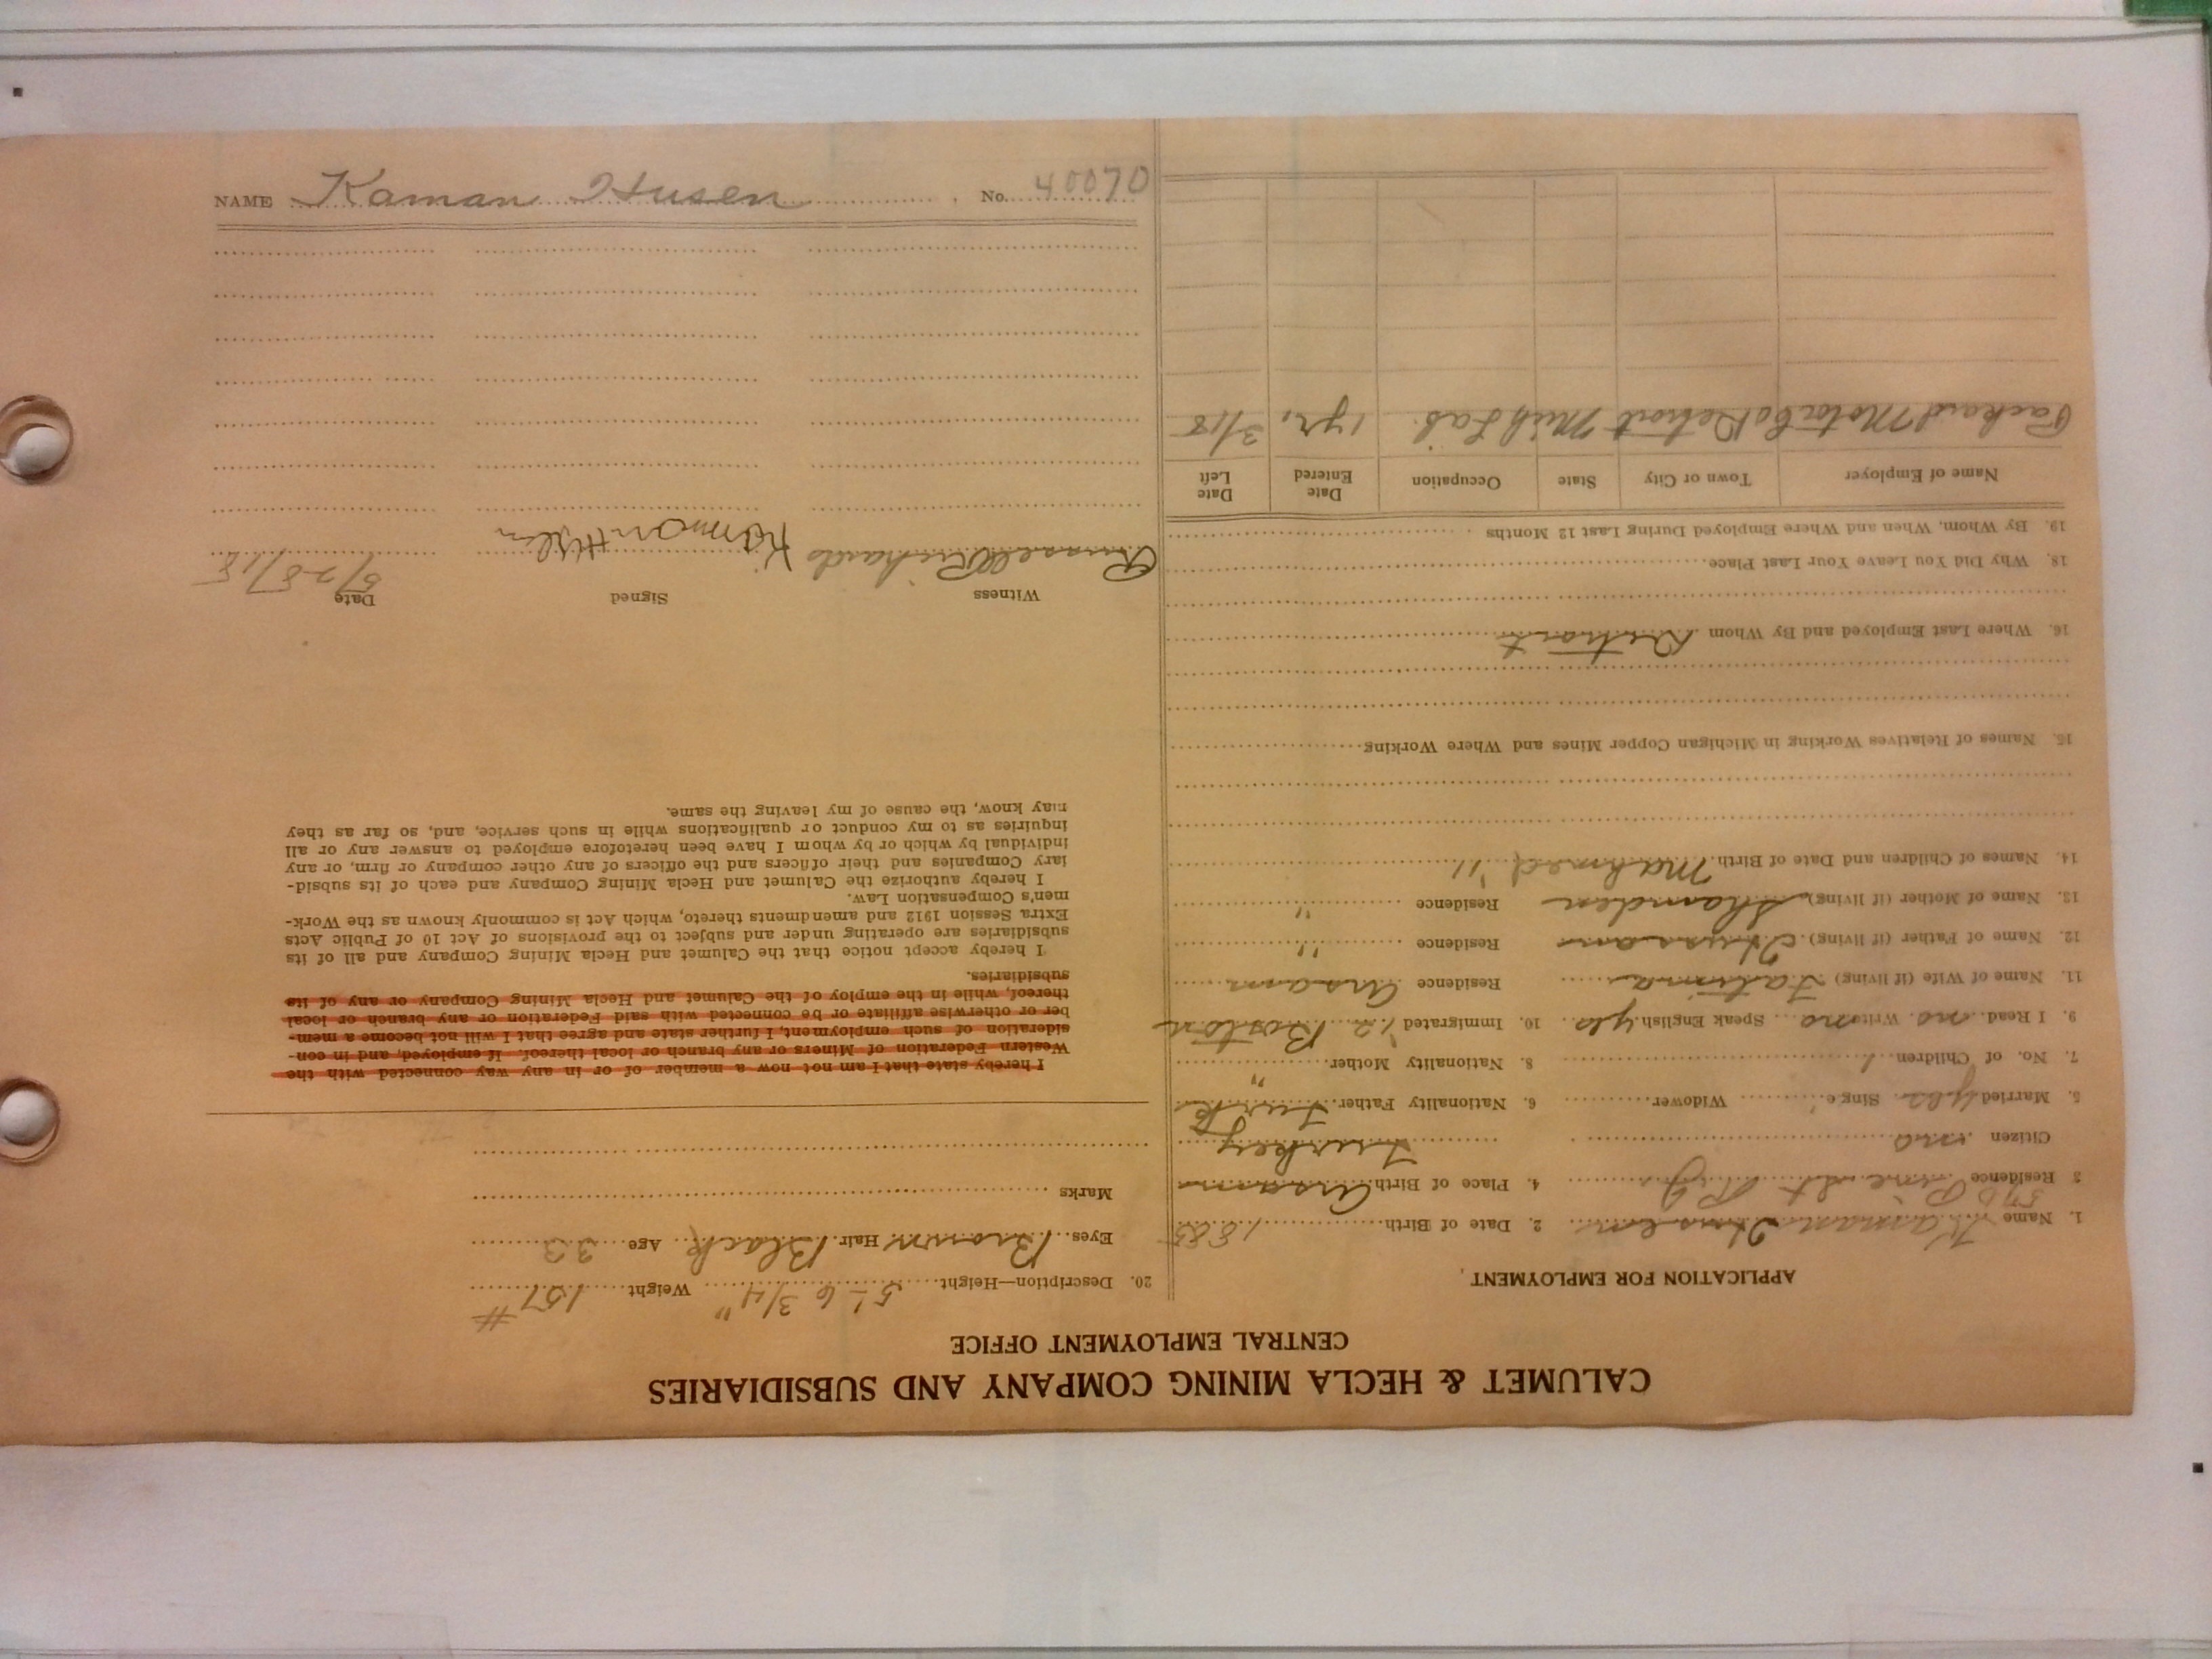 NAME Kaman Husen No. 40070
CALUMET & HECLA MINING COMPANY AND SUBSIDIARIES
CENTRAL EMPLOYMENT OFFICE
APPLICATION FOR EMPLOYMENT
1. Name Kaman Husen 2. Date of Birth 1885
3 Residence Pine St 4. Place of Birth
Citizen no Turkey
5. Married yes Single Widower 6. Nationality Father Turk
7. No. of Children 1 8. Nationality Mother "
9. I Read no Write no Speak English yes 10. Immigrated '12 Boston
11. Name of Wife (if living) Fatima Residence
12. Name of Father (if living) Residence "
13. Name of Mother (if living) Residence "
14. Names of Children and Date of Birth Mahmed '11
15. Names of Relatives Working in Michigan Copper Mines and Where Working
16. Where Last Employed and By Whom Detroit
18. Why Did You Leave Your Last Place
19. By Whom, When and Where Employed During Last 12 Months
Name of Employer Town or City State Occupation Date Entered Date Left
Packard Motor Co Detroit Mich Lab. 1 yr. 3/18
20. Description—Height 5'-6 3/4" Weight 157#
Eyes Brown Hair Black Age 33
Marks
I hereby state that I am not now a member of or in any way connected with the
Western Federation of Miners or any branch or local thereof. If employed, and in con-
sideration of such employment, I further state and agree that I will not become a mem-
ber or otherwise affiliate or be connected with said Federation or any branch or local
thereof, while in the employ of the Calumet and Hecla Mining Company or any of its
subsidiaries.
I hereby accept notice that the Calumet and Hecla Mining Company and all of its
subsidiaries are operating under and subject to the provisions of Act 10 of Public Acts
Extra Session 1912 and amendments thereto, which Act is commonly known as the Work-
men's Compensation Law.
I hereby authorize the Calumet and Hecla Mining Company and each of its subsid-
iary Companies and their officers and the officers of any other company or firm, or any
individual by which or by whom I have been heretofore employed to answer any or all
inquiries as to my conduct or qualifications while in such service, and, so far as they
may know, the cause of my leaving the same.
Witness Signed Date
Russell Richards 5/28/18